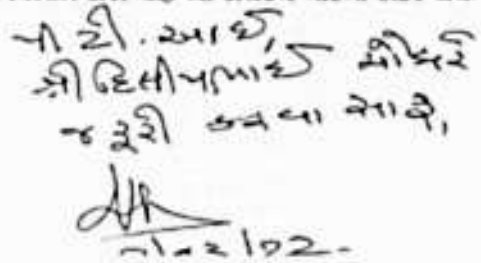 પી ટી. આઈ,
શ્રી દિલીપભાઈ ચૌધરી
જરૂરી કરવા સારૂ,